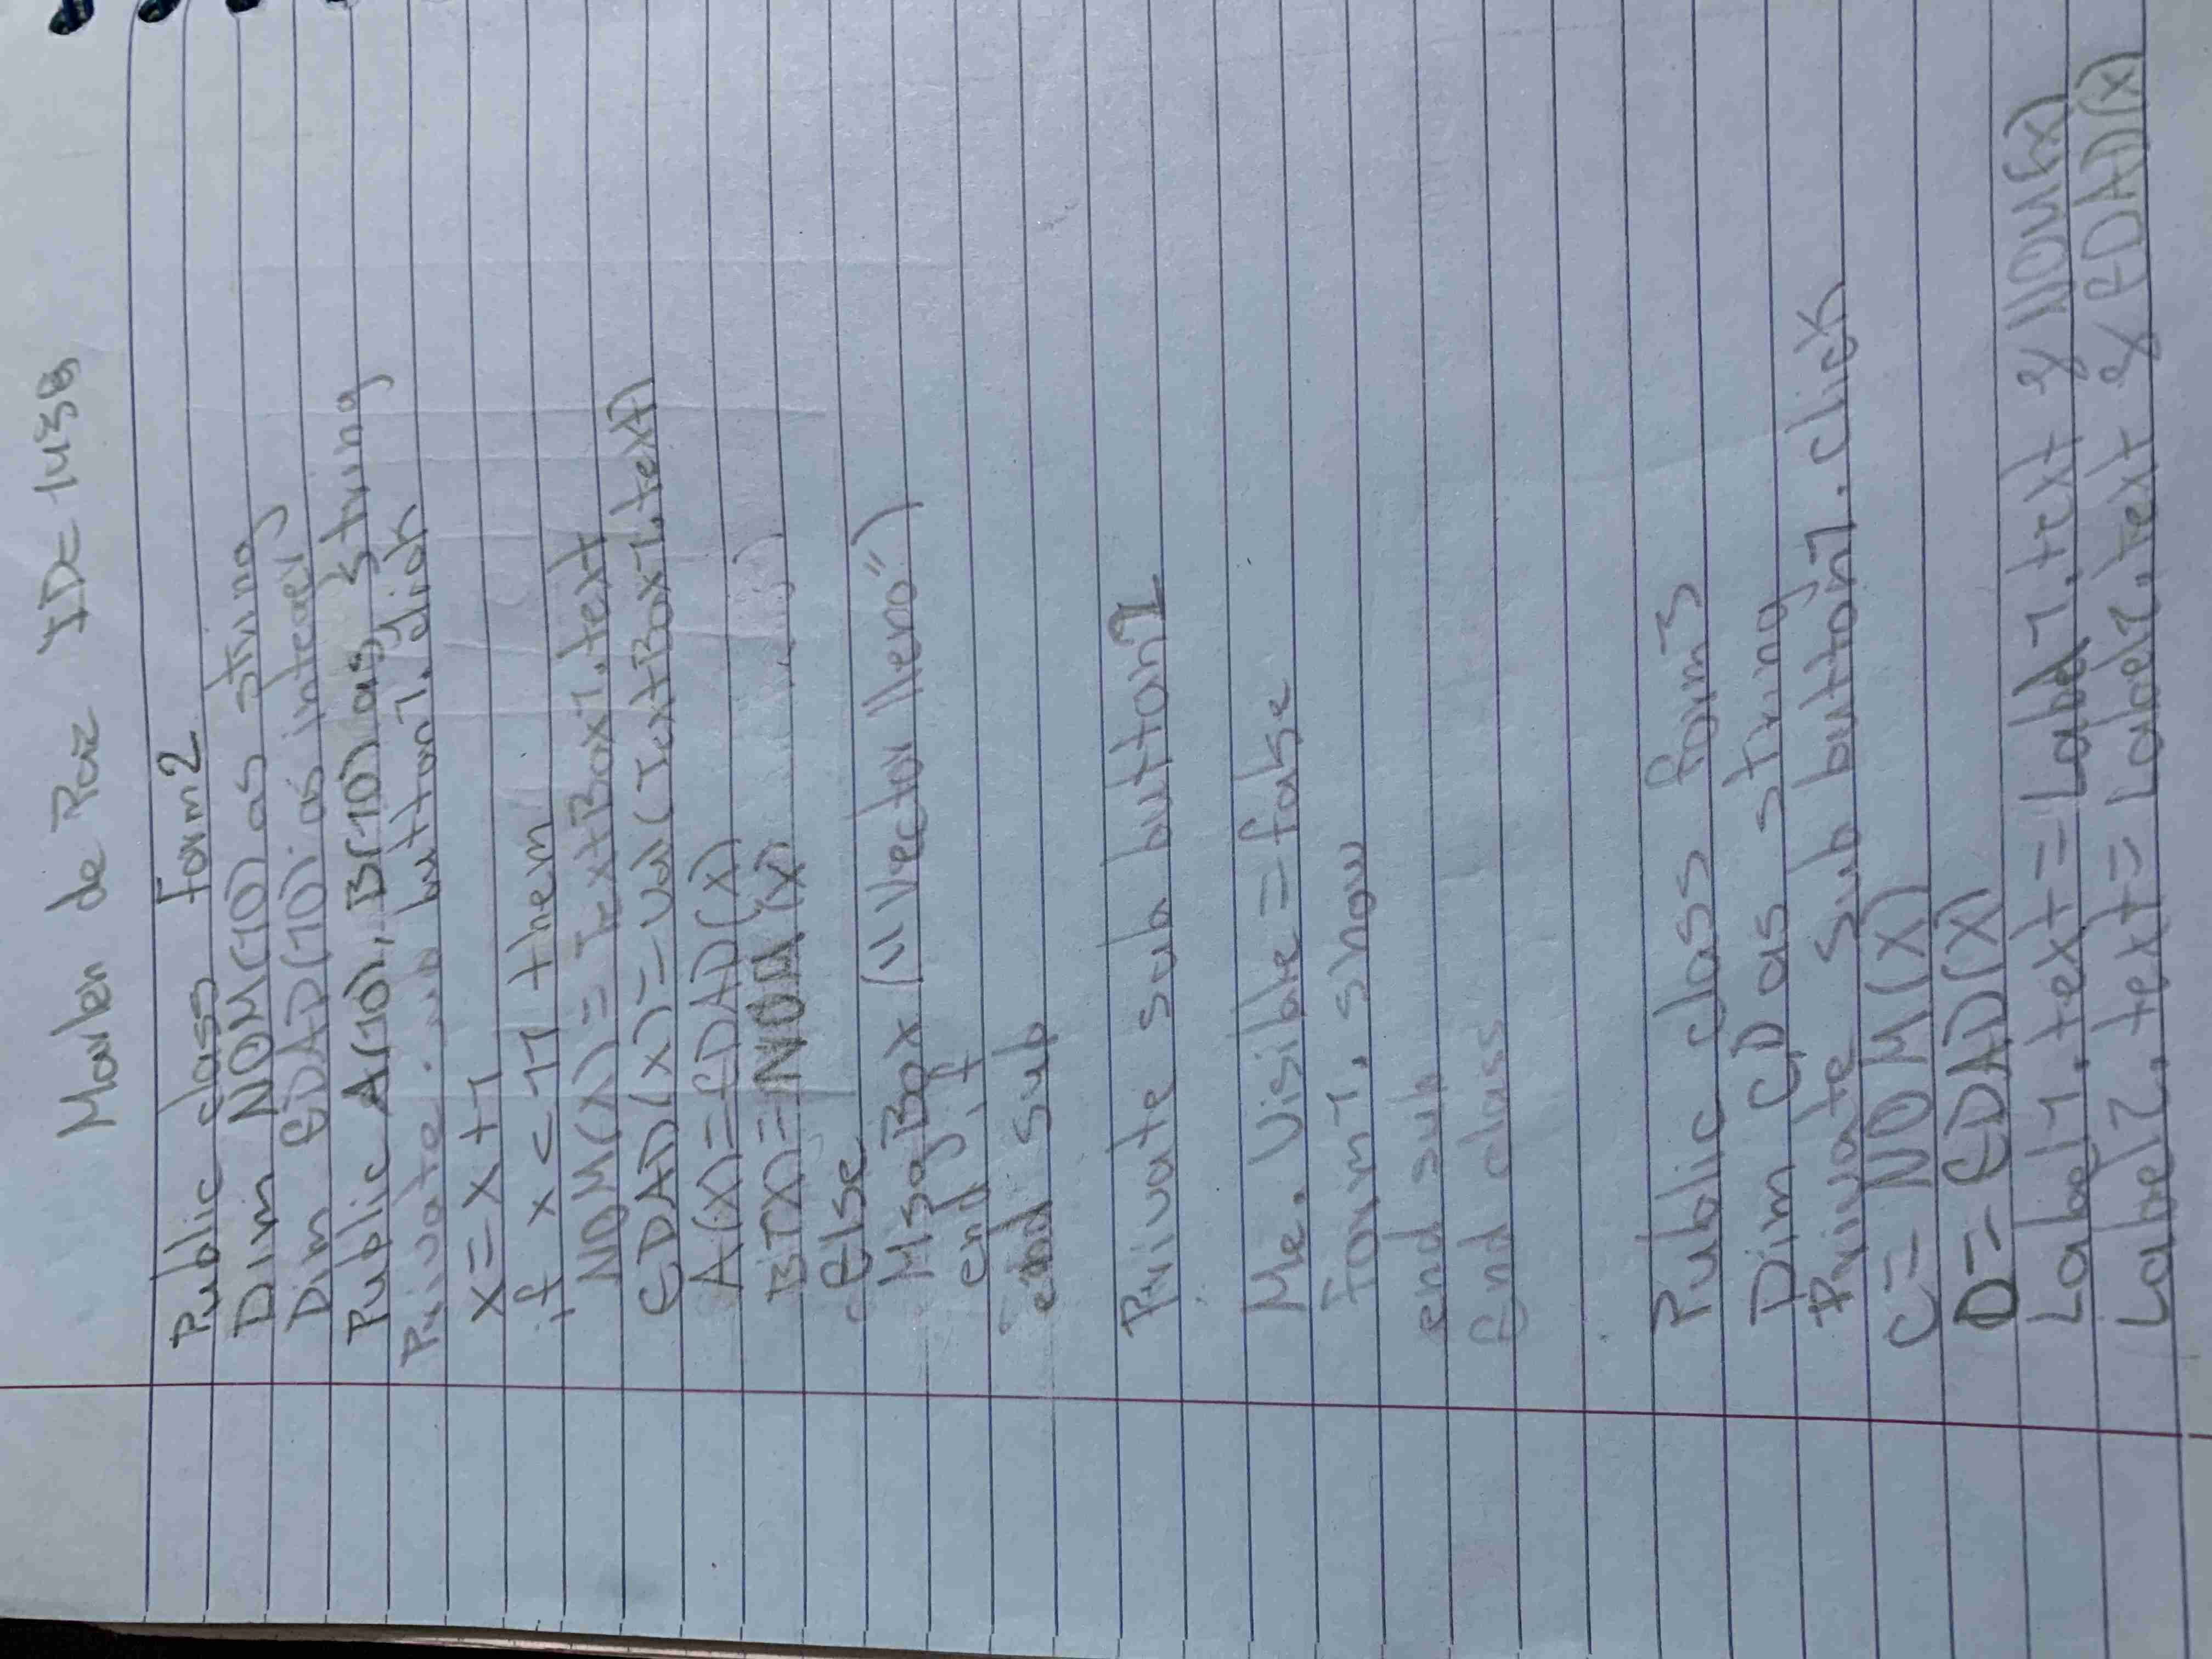 Marlen de Paz IDE 1438
Public class Form2
Dim NOM(10) as string
Dim EDAD(10) as integer
Public A(10), B(10) as string
Private sub button1.click
x=x+1
if x<11 them
NOM(x)=TextBox1.text
EDAD(x)=val(TextBox1.text)
A(x)=EDAD(x)
B(x)=NOM(x)
Else
MsgBox ("Vector lleno")
end if
end sub
Private sub button2
Me.Visible=false
Form1.show
end sub
End class
Public class form3
Dim C,D as string
Private sub button1.click
C=NOM(x)
D=EDAD(x)
Label1.text=Label1.text & NOM(x)
Label2.text=Label2.text & EDAD(x)